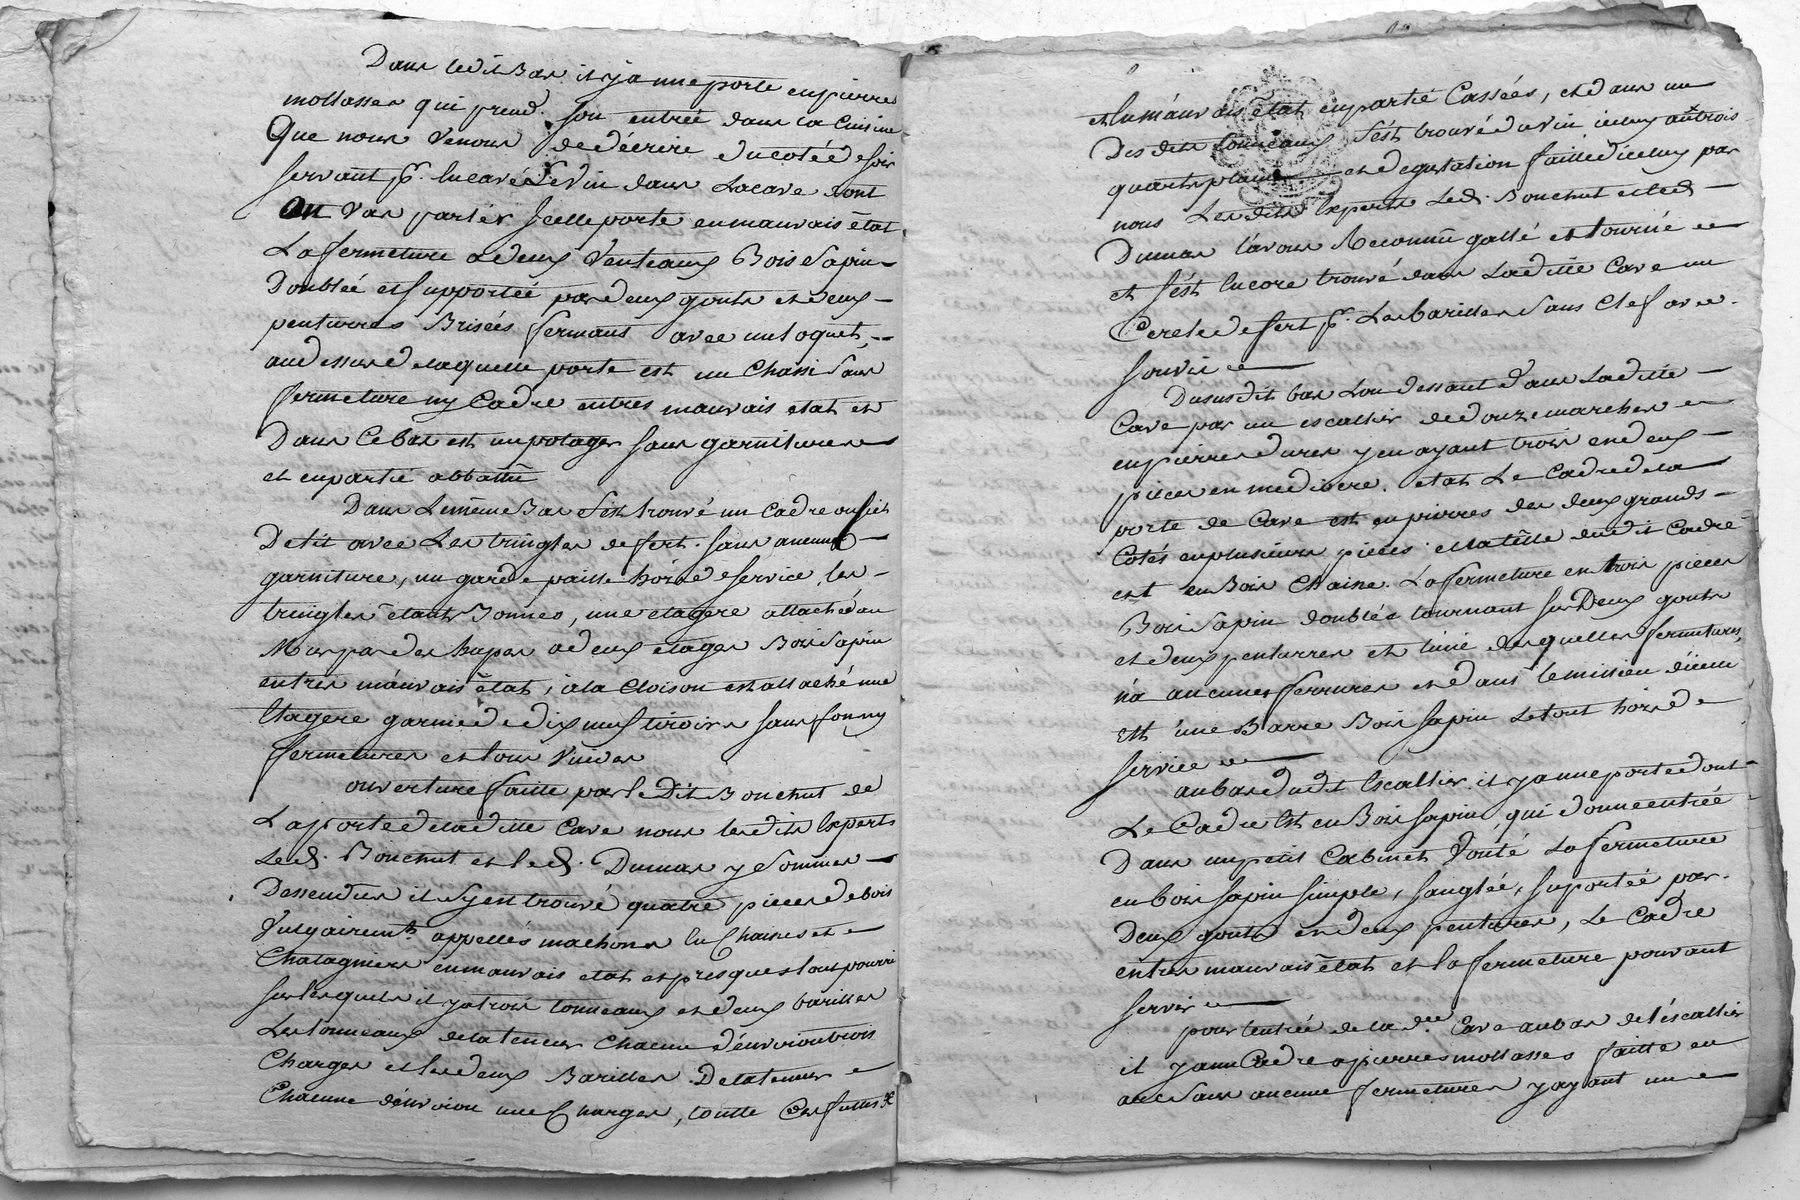 Dans ledit Bas il y a une porte en pierre
mollasses qui prend son entrée dans la Cuisine
Que nous Venons de décrire du coté de soir
servant pr. encavé Le Vin dans La cave dont
on Vas parler Jcelle porte en mauvais état
La fermeture a deux Venteaux Bois Sapin
Doublée et supportée par deux gonts et deux
penturres Brisées fermant avec un loquet,
au dessus de laquelle porte est un Chassi Sans
fermeture ny Cadre en tres mauvais etat et
Dans Ce bas est un potager sans garnitures
et en partie abbattu
Dans Le même Bas s'est trouvé un Cadre
De lit avec Les tringles de fert sans aucune
garniture, un garde paille hors de service, les
tringles étants Bonnes, une etagere attaché au
Mur par des hapes a deux étages Bois Sapin
en tres mauvais état, a la Cloison est attaché une
Etagere garnie de dix neuf tiroirs sans ny
fermetures et tous Vuides
ouverture faitte par le Dit Bonchut de
La porte de la ditte Cave nous les dits Experts
Led. Bonchut et led. Dumas y Sommes
Dessendus il s'y est trouvé quatre pieces de bois
Vulgairemt. appellés machons en Chaines et
Chatagniers en mauvais etat et presques tout pourri
sur lesquels il y a trois tonneaux et deux barilles
Les tonneaux de la teneur Chacun d'environ trois
Charges et les deux Barilles De la teneur
Chacune d'environ une Charges, toutte Ces futtes
et en mauvais état en partie Cassées, et dans un
Des dits tonneaux s'est trouvé du vin icelui aux trois
quarts plain et degustation faitte d'icelui par
nous Les dits Experts Led. Bonchut et led.
Dumas l'avons Reconnu gatté et tourné
et s'est encore trouvé dans Laditte Cave un
Cercle de fert pr. Les barilles Sans Clef avec
souvir
Du susdit bas L'on dessant dans Laditte
Cave par un escallier de douze marches
en pierres dures y en ayant trois en deux
pieces en mediocre etat Le Cadre de la
porte de Cave est en pierres des deux grands
Cotés en plusieurs pieces et la tête dudit Cadre
est en Bois Chaine. La fermeture en trois pieces
Bois Sapin doublée tournant sur Deux gonts
et deux penturres et l'une desquelles fermetures
n'a aucunes ferrures et dans le millieu d'icelle
est une Barre Bois sapin Le tout hors de
service
au bas dudit Escallier il y a une porte dont
Le Cadre Est en Bois sapin, qui donne entrée
Dans un petit Cabinet Vouté La fermeture
en bois sapin simple, sanglée, suportée par
Deux gonts en deux pentures, Le Cadre
en tres mauvais état et la fermeture pouvant
servir
pour l'entrée de la de. Cave au bas de l'éscallier
il y a un Cadre a pierres mollasses faitte en
arc Sans aucune fermetures y ayant une